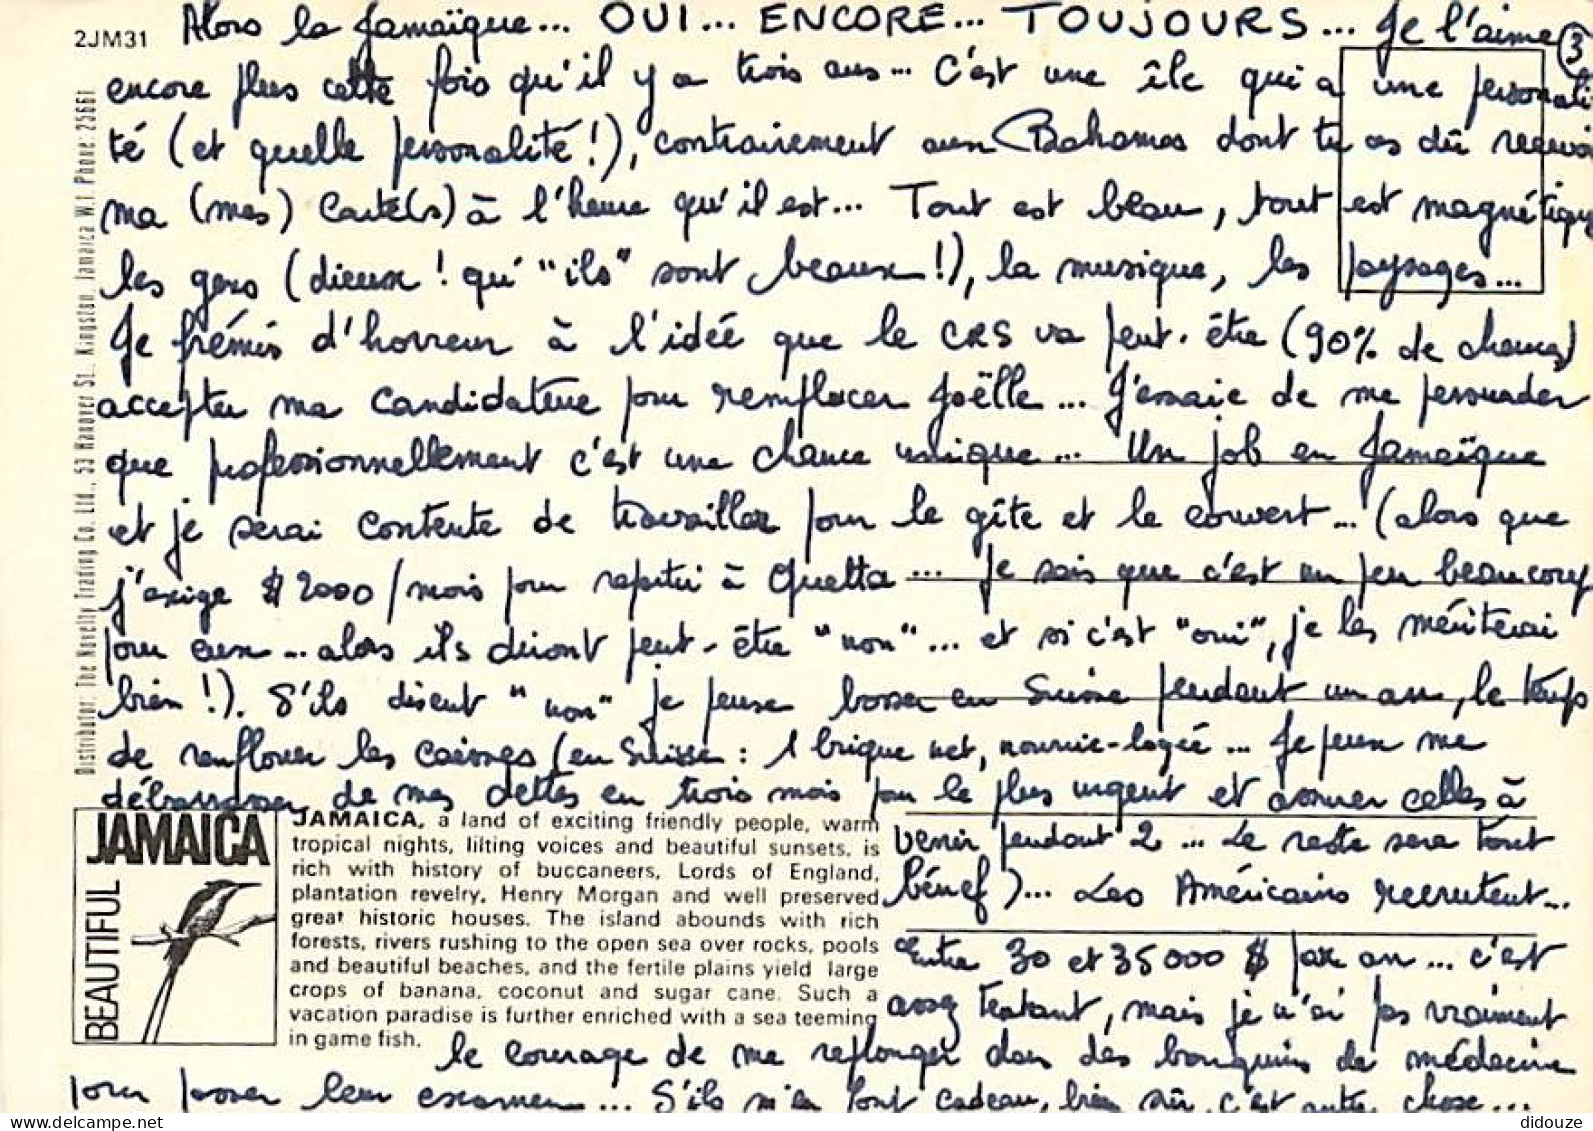 2JM31
Alors la Jamaïque... OUI... ENCORE... TOUJOURS... Je l'aime
3
encore plus cette fois qu'il y a trois ans... C'est une île qui a une personali-
té (et quelle personalité!), contrairement aux Bahamas dont tu as dû recevoi
ma (mes) carte(s) à l'heure qu'il est... Tout est beau, tout est magnétique
les gens (dieux! qu' "ils" sont beaux!), la musique, les paysages...
Je frémis d'horreur à l'idée que le CRS va peut-être (90% de chances)
accepter ma candidature pour remplacer Joëlle... J'essaie de me persuader
que professionnellement c'est une chance unique... Un job en Jamaïque
et je serai contente de travailler pour le gîte et le couvert... (alors que
j'exige $ 2000/mois pour repartir à Quetta... Je sais que c'est un peu beaucoup
pour eux... alors ils diront peut-être "non"... et si c'est "oui", je les mériterai
bien!). S'ils disent "non" je peux bosser en Suisse pendant un an, le temps
de renflouer les caisses (en Suisse: 1 brique net, nourrie-logée... Je peux me
débarrasser de mes dettes en trois mois pour le plus urgent et assurer celles à
venir pendant 2... Le reste sera tout
bénef)... Les Américains recrutent...
Entre 30 et 35000 $ par an... c'est
assez tentant, mais je n'ai pas vraiment
le courage de me replonger dans des bouquins de médecine
pour passer leur examen... S'ils m'en font cadeau, bien sûr, c'est autre chose...
Distributor: The Novelty Trading Co. Ltd., 53 Hanover St., Kingston, Jamaica W.I. Phone 25661
BEAUTIFUL
JAMAICA
JAMAICA, a land of exciting friendly people, warm
tropical nights, lilting voices and beautiful sunsets, is
rich with history of buccaneers, Lords of England,
plantation revelry, Henry Morgan and well preserved
great historic houses. The island abounds with rich
forests, rivers rushing to the open sea over rocks, pools
and beautiful beaches, and the fertile plains yield large
crops of banana, coconut and sugar cane. Such a
vacation paradise is further enriched with a sea teeming
in game fish.
www.delcampe.net
didouze